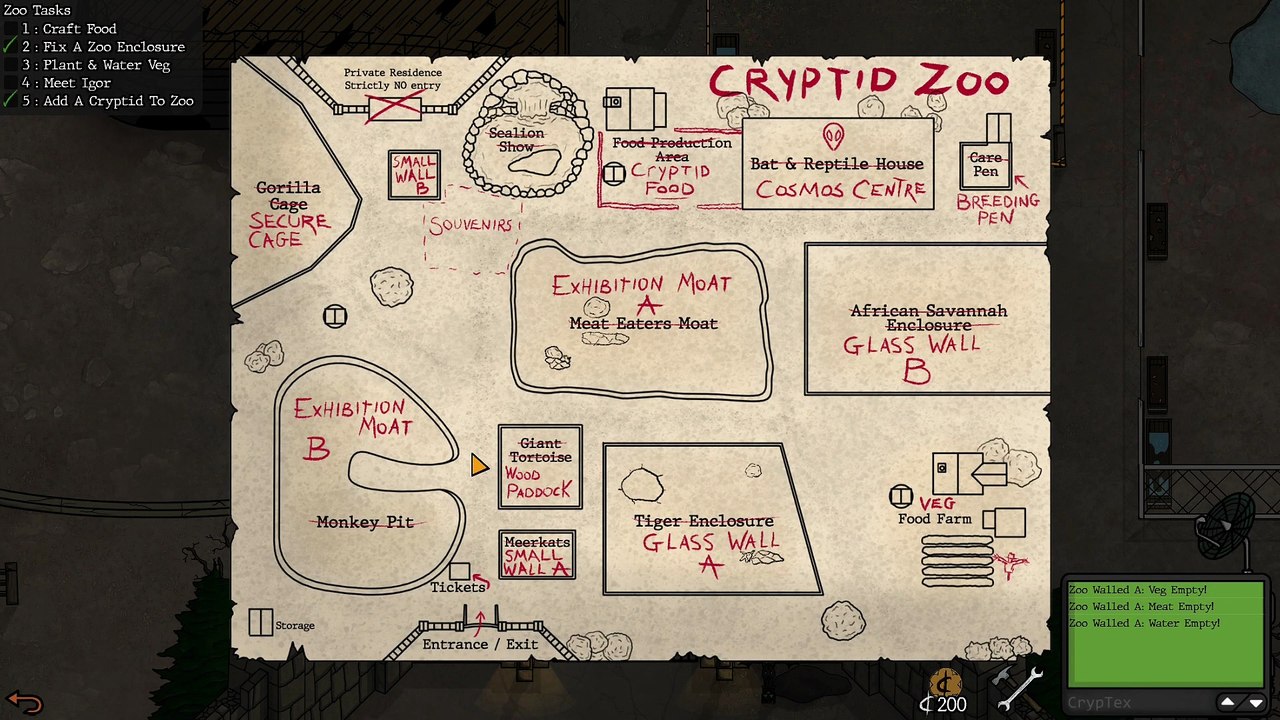 Zoo Tasks
1 : Craft Food
2 : Fix A Zoo Enclosure
3 : Plant & Water Veg
4 : Meet Igor
5 : Add A Cryptid To Zoo
CRYPTID ZOO
Private Residence
Strictly NO entry
Sealion
Show
SMALL
WALL
B
Food Production
Area
CRYPTID
FOOD
Bat & Reptile House
COSMOS CENTRE
Care
Pen
BREEDING
PEN
Gorilla
Cage
SECURE
CAGE
SOUVENIRS
EXHIBITION MOAT
A
Meat Eaters Moat
African Savannah
Enclosure
GLASS WALL
B
EXHIBITION
MOAT
B
Monkey Pit
Giant
Tortoise
WOOD
PADDOCK
Meerkats
SMALL
WALL A
Tiger Enclosure
GLASS WALL
A
VEG
Food Farm
Tickets
Storage
Entrance / Exit
Zoo Walled A: Veg Empty!
Zoo Walled A: Meat Empty!
Zoo Walled A: Water Empty!
CrypTex
¢ 200